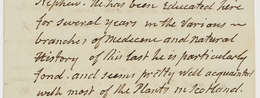 Nephew. He has been Educated here
for several years in the Various
branches of Medicine and Natural
History of this last he is particularly
fond. and seems pritty well acquainted
with most of the Plants in Scotland.